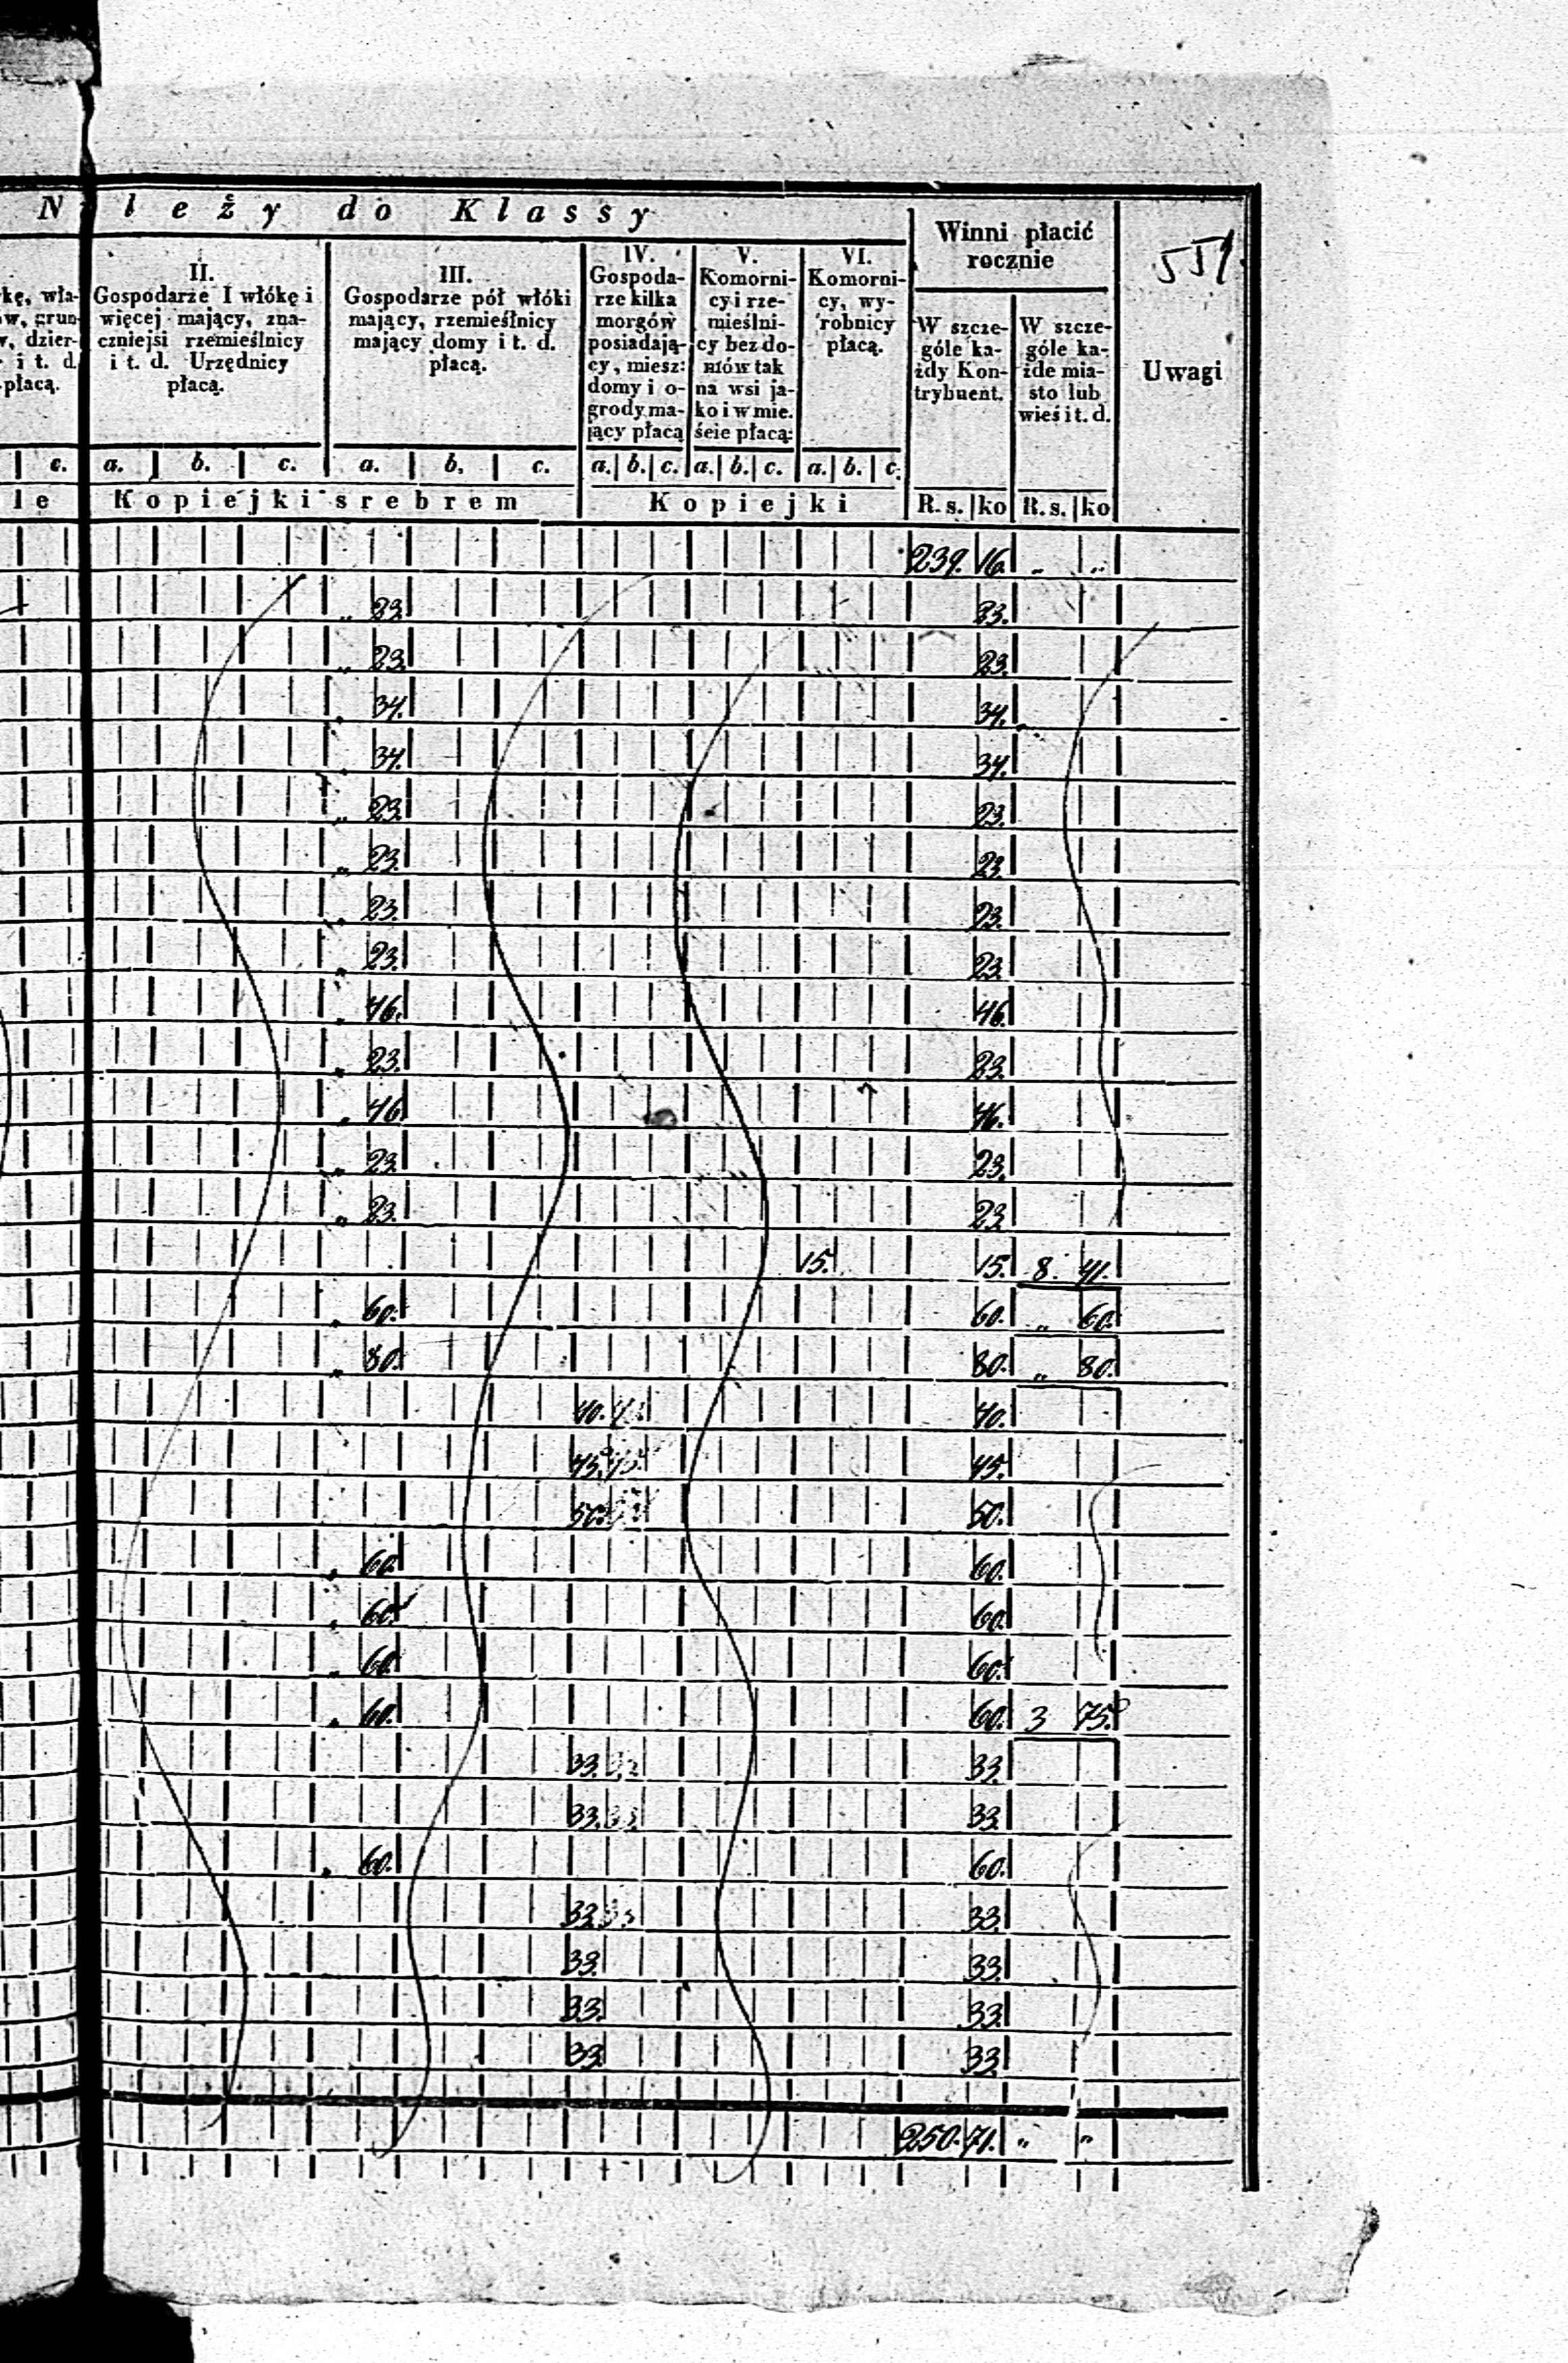 N leży do Klassy
Winni płacić rocznie
551
kę, wła-
w, grun-
v, dzier-
i t. d.
płacą.
II.
Gospodarze I włókę i
więcej mający, zna-
czniejsi rzemieślnicy
i t. d. Urzędnicy
płacą.
III.
Gospodarze pół włóki
mający, rzemieślnicy
mający domy i t. d.
płacą.
IV.
Gospoda-
rze kilka
morgów
posiadają-
cy, miesz:
domy i o-
grody ma-
jący płacą
V.
Komorni-
cy i rze-
mieślni-
cy bez do-
mów tak
na wsi ja-
ko i w mie.
ście płacą:
VI.
Komorni-
cy, wy-
robnicy
płacą.
W szcze-
góle ka-
żdy Kon-
trybuent.
W szcze-
góle ka-
żde mia-
sto lub
wieś i t. d.
Uwagi
c. a. b. c. a. b. c. a. b. c. a. b. c. a. b. c.
le Kopiejki srebrem Kopiejki R. s. ko R. s. ko
239. 16. „ „
„ 23. 23.
„ 23. 23.
„ 34. 34.
„ 34. 34.
„ 23. 23.
„ 23. 23.
„ 23. 23.
„ 23. 23.
„ 46. 46.
„ 23. 23.
„ 46. 46.
„ 23. 23.
„ 23. 23.
15. 15. 8. 41.
„ 60. 60. „ 60.
„ 80. 80. „ 80.
40. 40.
45. 45.
50. 50.
„ 60. 60.
„ 60. 60.
„ 60. 60.
„ 60. 60. 3 75.
33. 33.
33. 33.
„ 60. 60.
33. 33.
33. 33.
33. 33.
33. 33.
250. 71. „ „